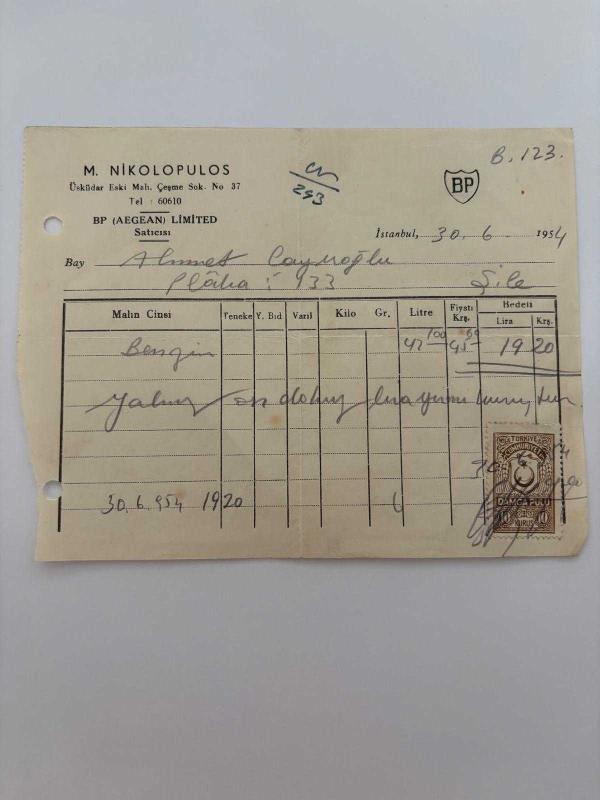 M. NİKOLOPULOS
Üsküdar Eski Mah. Çeşme Sok. No 37
Tel : 60610
BP (AEGEAN) LİMİTED
Satıcısı
CN
293
B. 123.
BP
İstanbul, 30. 6. 1954
Bay Ahmet
Plâka : 933 Şile
Malın Cinsi Teneke Y. Bid Varil Kilo Gr. Litre Fiyatı Krş. Bedeli Lira Krş.
Benzin 45 19 20
Yalnız on dokuz lira yirmi kuruştur
30.6.954 1920
30.6.954
TÜRKİYE
CUMHURİYETİ
DAMGA PULU
10 KURUŞ 10